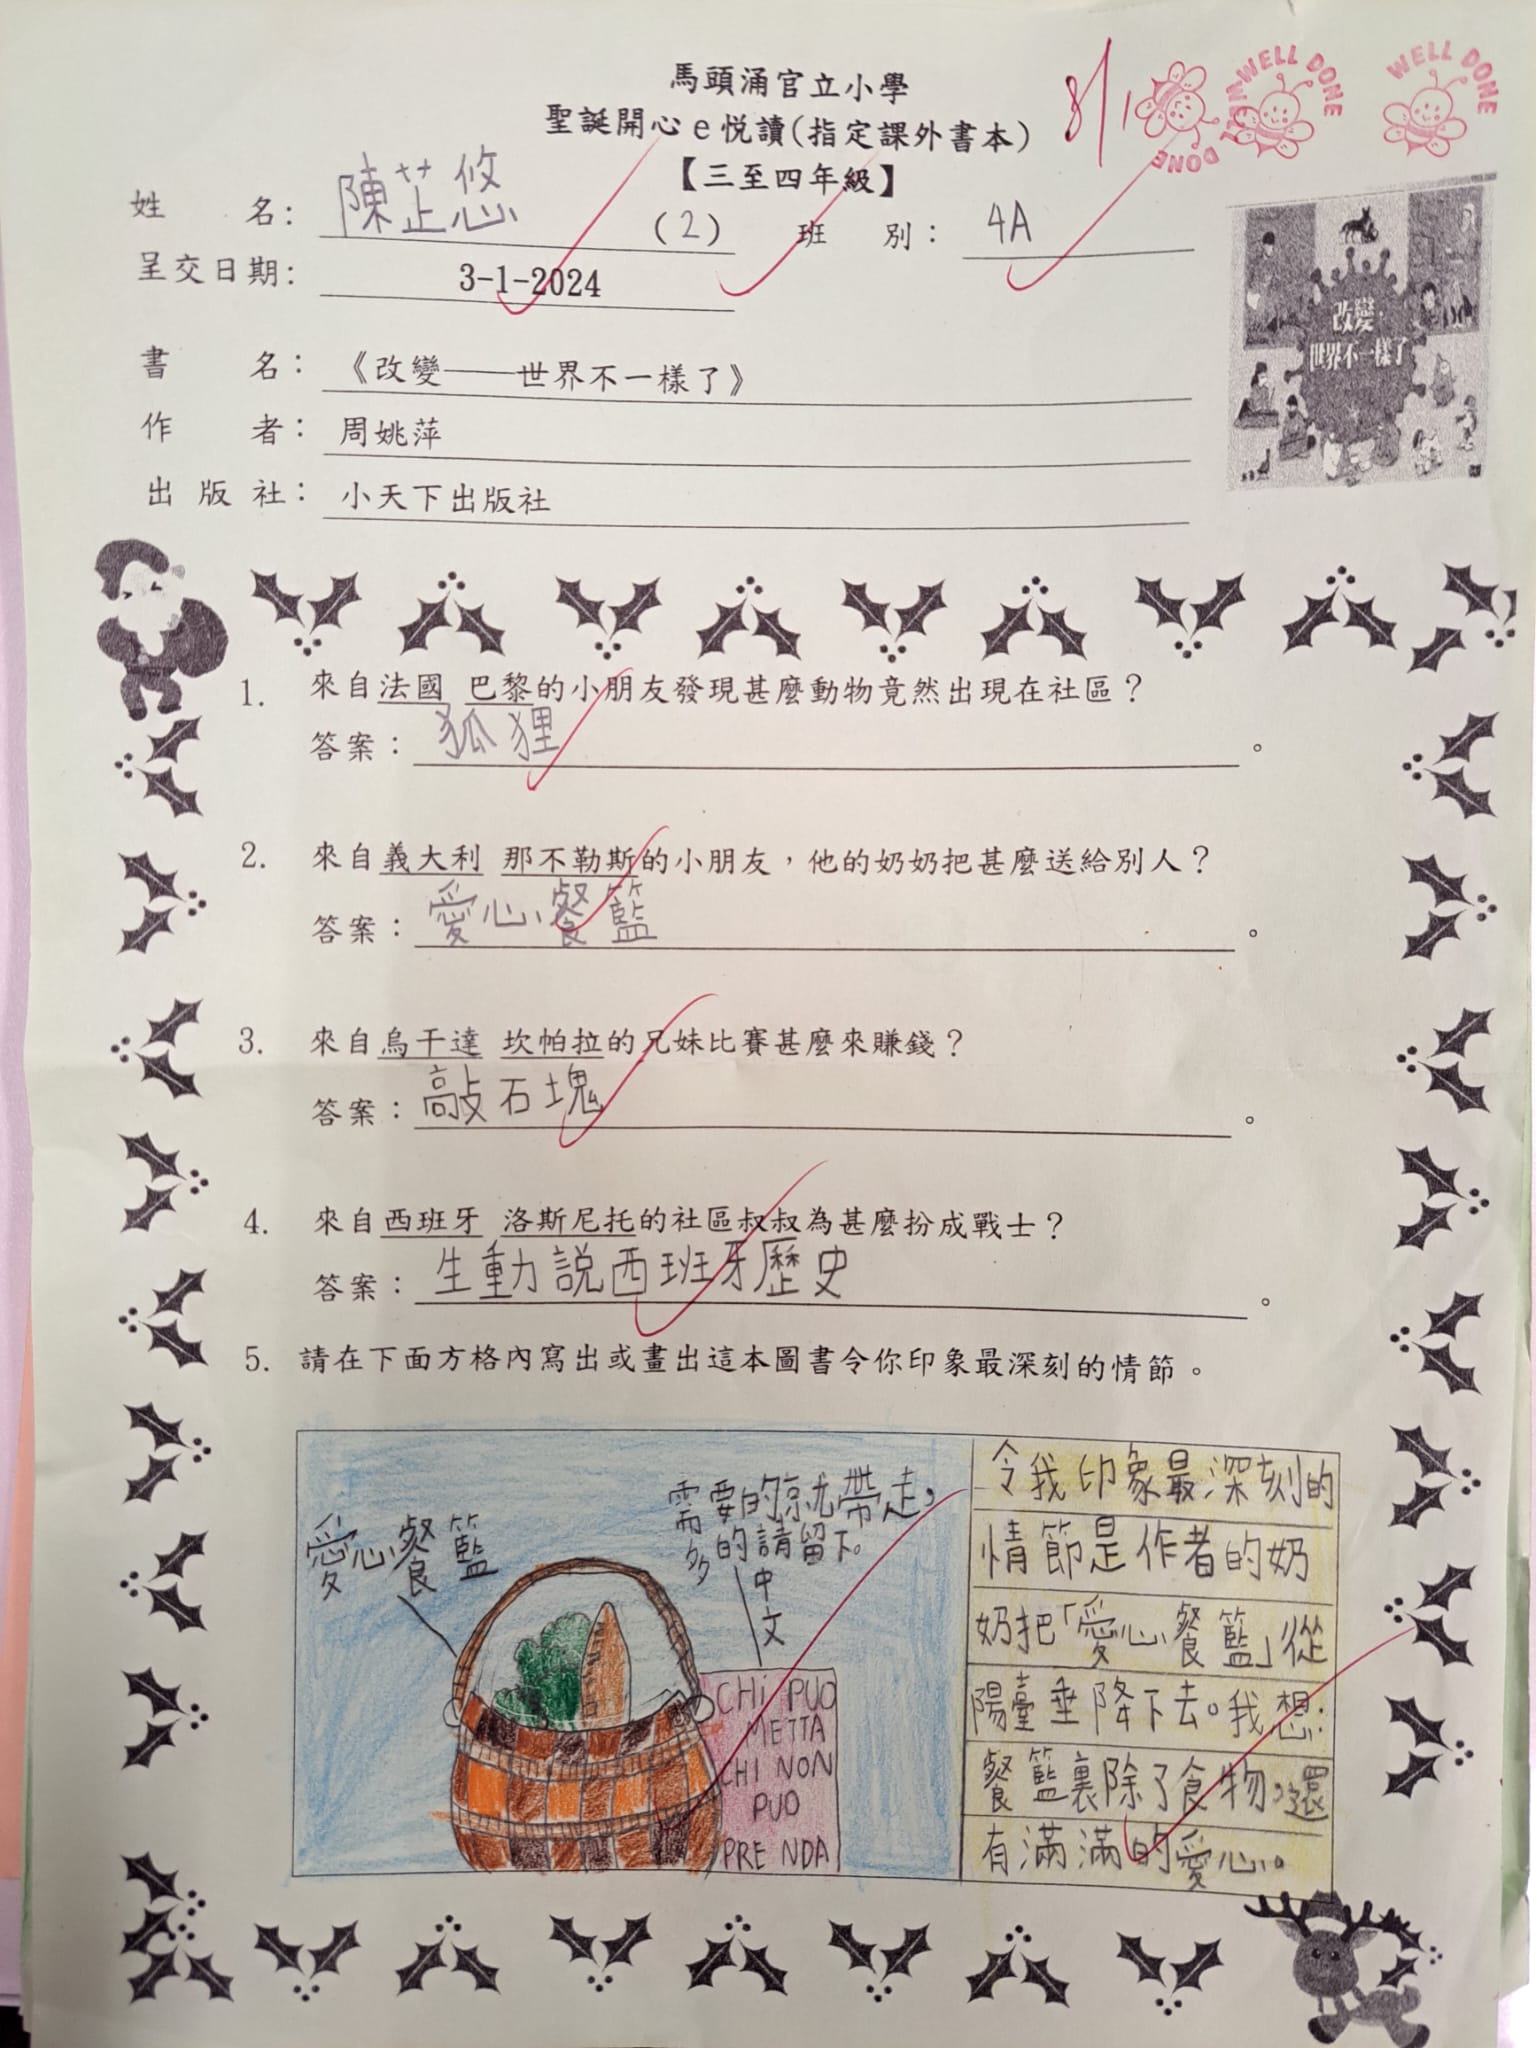 馬頭涌官立小學
聖誕開心e悅讀(指定課外書本)
【三至四年級】
8/1
WELL DONE
WELL DONE
WELL DONE
姓 名: 陳芷悠 (2) 班 別: 4A
呈交日期: 3-1-2024
書 名: 《改變——世界不一樣了》
作 者: 周姚萍
出 版 社: 小天下出版社
改變·
世界不一樣了
1. 來自法國 巴黎的小朋友發現甚麼動物竟然出現在社區?
答案: 狐狸。
2. 來自義大利 那不勒斯的小朋友,他的奶奶把甚麼送給別人?
答案: 愛心餐籃。
3. 來自烏干達 坎帕拉的兄妹比賽甚麼來賺錢?
答案: 敲石塊。
4. 來自西班牙 洛斯尼托的社區叔叔為甚麼扮成戰士?
答案: 生動説西班牙歷史。
5. 請在下面方格內寫出或畫出這本圖書令你印象最深刻的情節。
愛心餐籃
需要的就帶走,
多的請留下。
中文
CHi PUO
METTA
CHI NON
PUO
PRENDA
令我印象最深刻的
情節是作者的奶
奶把「愛心餐籃」從
陽臺垂降下去。我想:
餐籃裏除了食物,還
有滿滿的愛心。